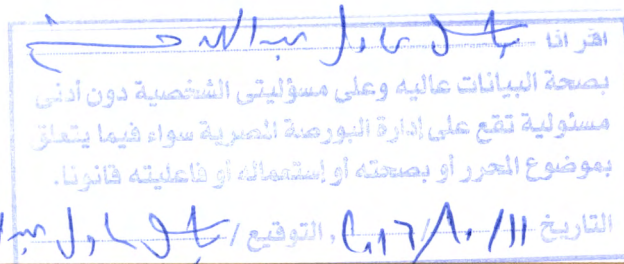 اقر انا باسل عادل عبدالله حسن
بصحة البيانات عاليه وعلى مسؤليتى الشخصية دون أدنى
مسئولية تقع على إدارة البورصة المصرية سواء فيما يتعلق
بموضوع المحرر أو بصحته أو إستعماله أو فاعليته قانونا.
التاريخ ١١/١٠/٢٠١٦، التوقيع / باسل عادل